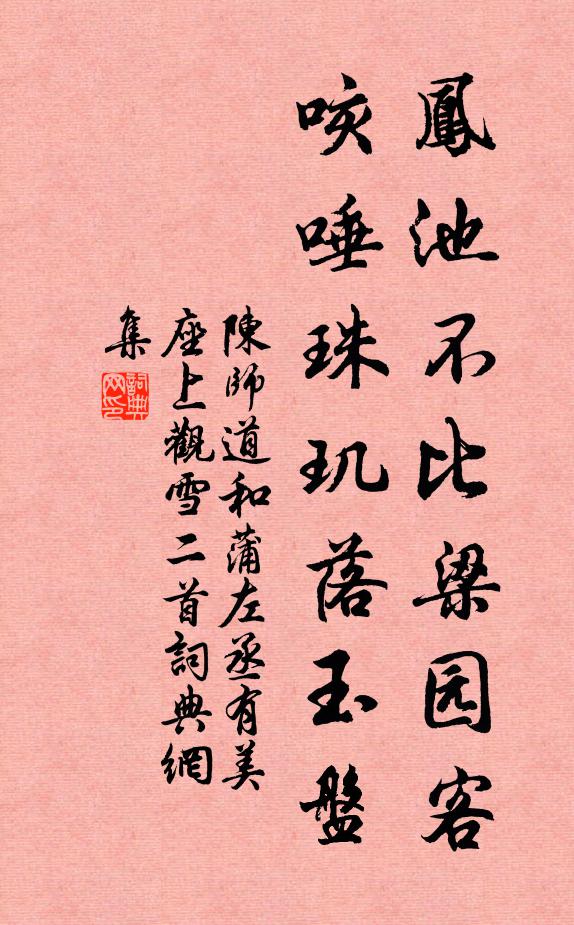 鳳池不比梁园客
咳唾珠玑落玉盤
陳師道和蒲左丞有美
座上觀雪二首詞典網
集
詞典网印